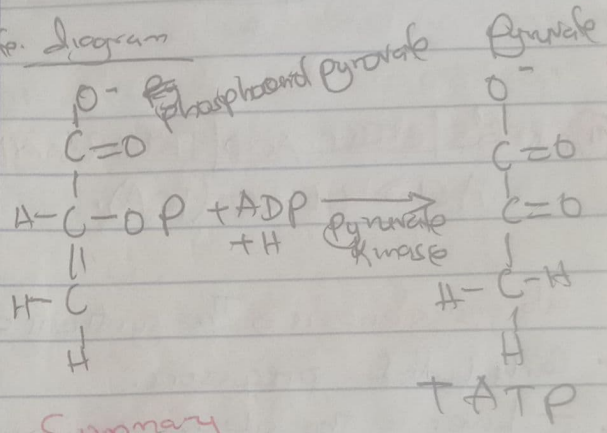 diagram
Phosphoenol pyrovate
Pyruvate
O⁻
C=O
H-C-O P + ADP
+H
H-C
H
Pyruvate
Kinase
O⁻
C=O
C=O
H-C-H
H
+ ATP
Summary